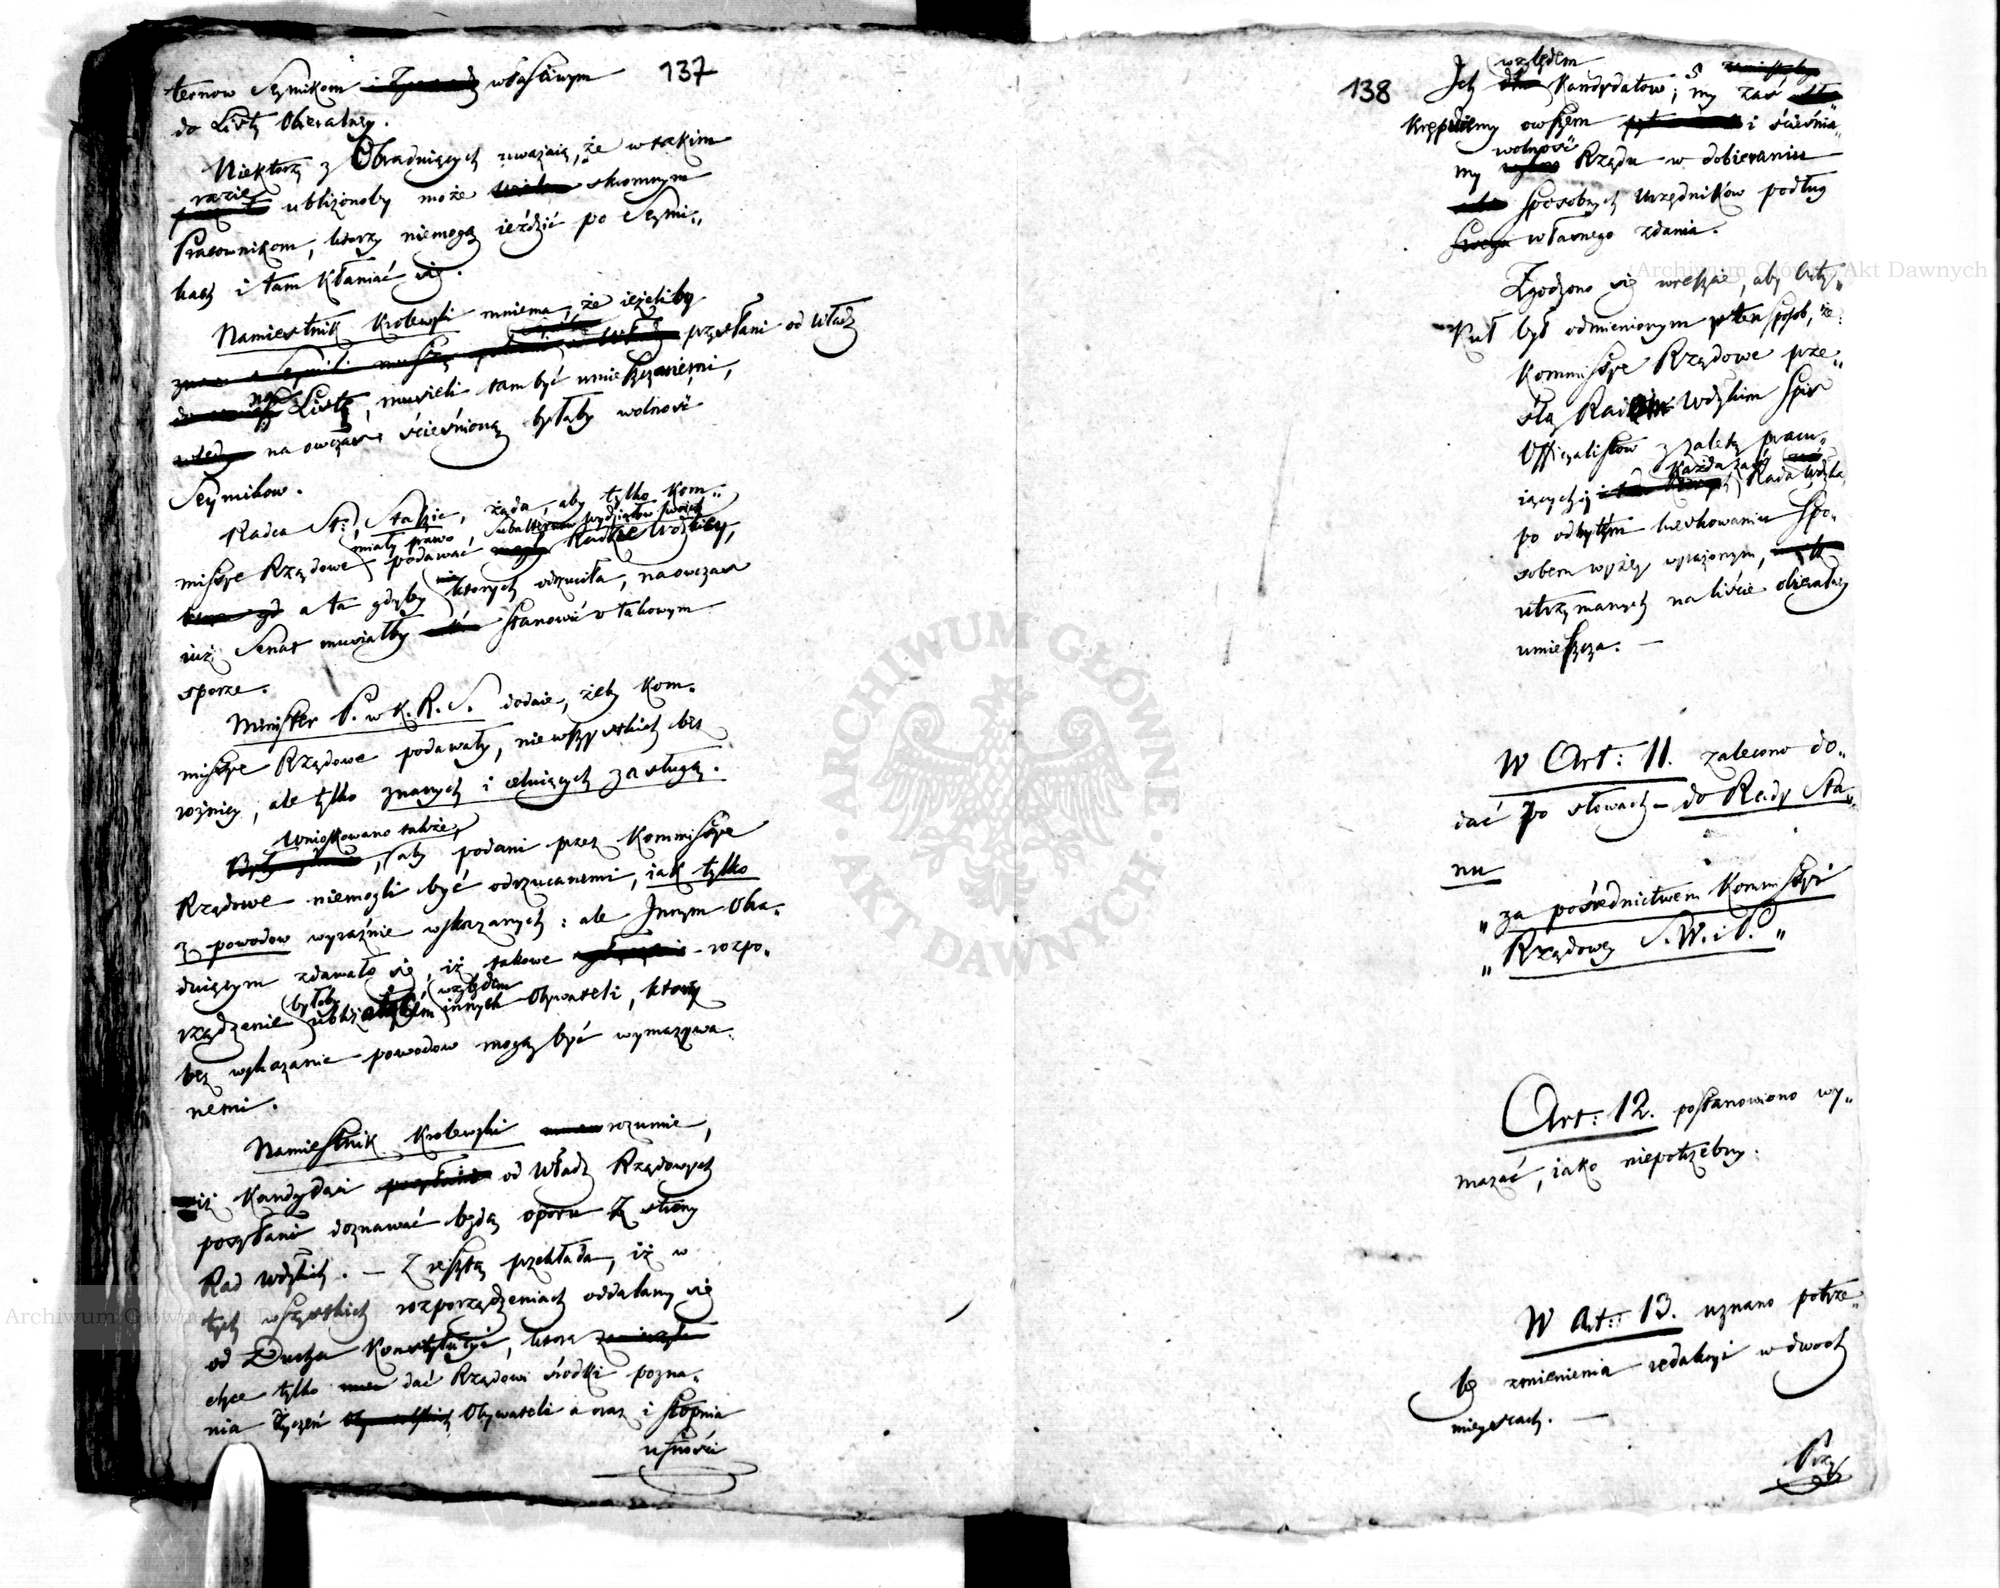 137
ternow Seymikom i własciwym
do Listy Obieralney.
Niektorzy z Obraduiących uważaią, że w takim
razie ubliżonoby może skromnym
Pracownikom, ktorzy niemogą ieździć po Seymi„
kach i tam kłaniać się.
Namiestnik Krolewski mniema, że ieżeliby
przysłani od Władz
na Listę, musieli tam być umieszczaniemi,
naowczas ścieśnioną byłaby wolność
Seymikow.
Radca St: Staszic, żąda, aby tylko Kom„
missye Rządowe miały prawo podawać Subalternow wydziałow swoich Radzie Wdzkiey,
a ta gdyby ktorych odrzuciła, naowczas
iuż Senat musiałby stanowić w takowym
sporze.
Minister P. w K. R. S. dodaie, żeby Kom„
missye Rządowe podawały, niewszystkich bez
rożnicy, ale tylko znanych i celuiących zasługą.
Wnioskowano także, aby podani przez Kommissye
Rządowe niemogli być odrzucanemi, iak tylko
z powodow wyraźnie wskazanych: ale Innym Obra„
duiącym zdawało się, iż takowe rozpo„
rządzenie byłoby względem innych Obywateli, ktorzy
bez wykazania powodow mogą być wymazywa„
nemi.
Namiestnik Krolewski rozumie,
iż Kandydaci od Władz Rządowych
posyłani doznawać będą oporu ze strony
Rad Wdzkich. — Zresztą przekłada, iż w
tych wszystkich rozporządzeniach oddalamy się
od Ducha Konstytucyi, ktora
chce tylko dać Rządowi środki pozna„
nia życzeń Obywateli a oraz i stopnia
ufności
138
Ich względem Kandydatow; my zaś
Krępuiemy owszem i ścieśnia„
my wolność Rządu w dobieraniu
sposobnych Urzędnikow podług
własnego zdania.
Zgodzono się wreszcie, aby Arty„
kuł był odmienionym w ten sposob, że:
Kommissye Rządowe prze„
ślą Radom Wdzkim Spis
Officyalistow z zaletą pracu„
iących; każda zaś Rada Wdzka
po odbytym kreskowaniu spo„
sobem wyżey wyrażonym,
utrzymanych na liście obieralney
umieszcza. —
W Art: 11. zalecono do„
dać po słowach — do Rady Sta„
nu
„ za pośrednictwem Kommissyi
„ Rządowey S. W. i P. „
Art: 12. postanowiono wy„
mazać, iako niepotrzebny.
W Art: 13. uznano potrze„
bę zmienienia redakcyi w dwoch
mieyscach. —
Przy
Archiwum Główne Akt Dawnych
Archiwum Główne Akt Dawnych
ARCHIWUM GŁÓWNE
AKT DAWNYCH